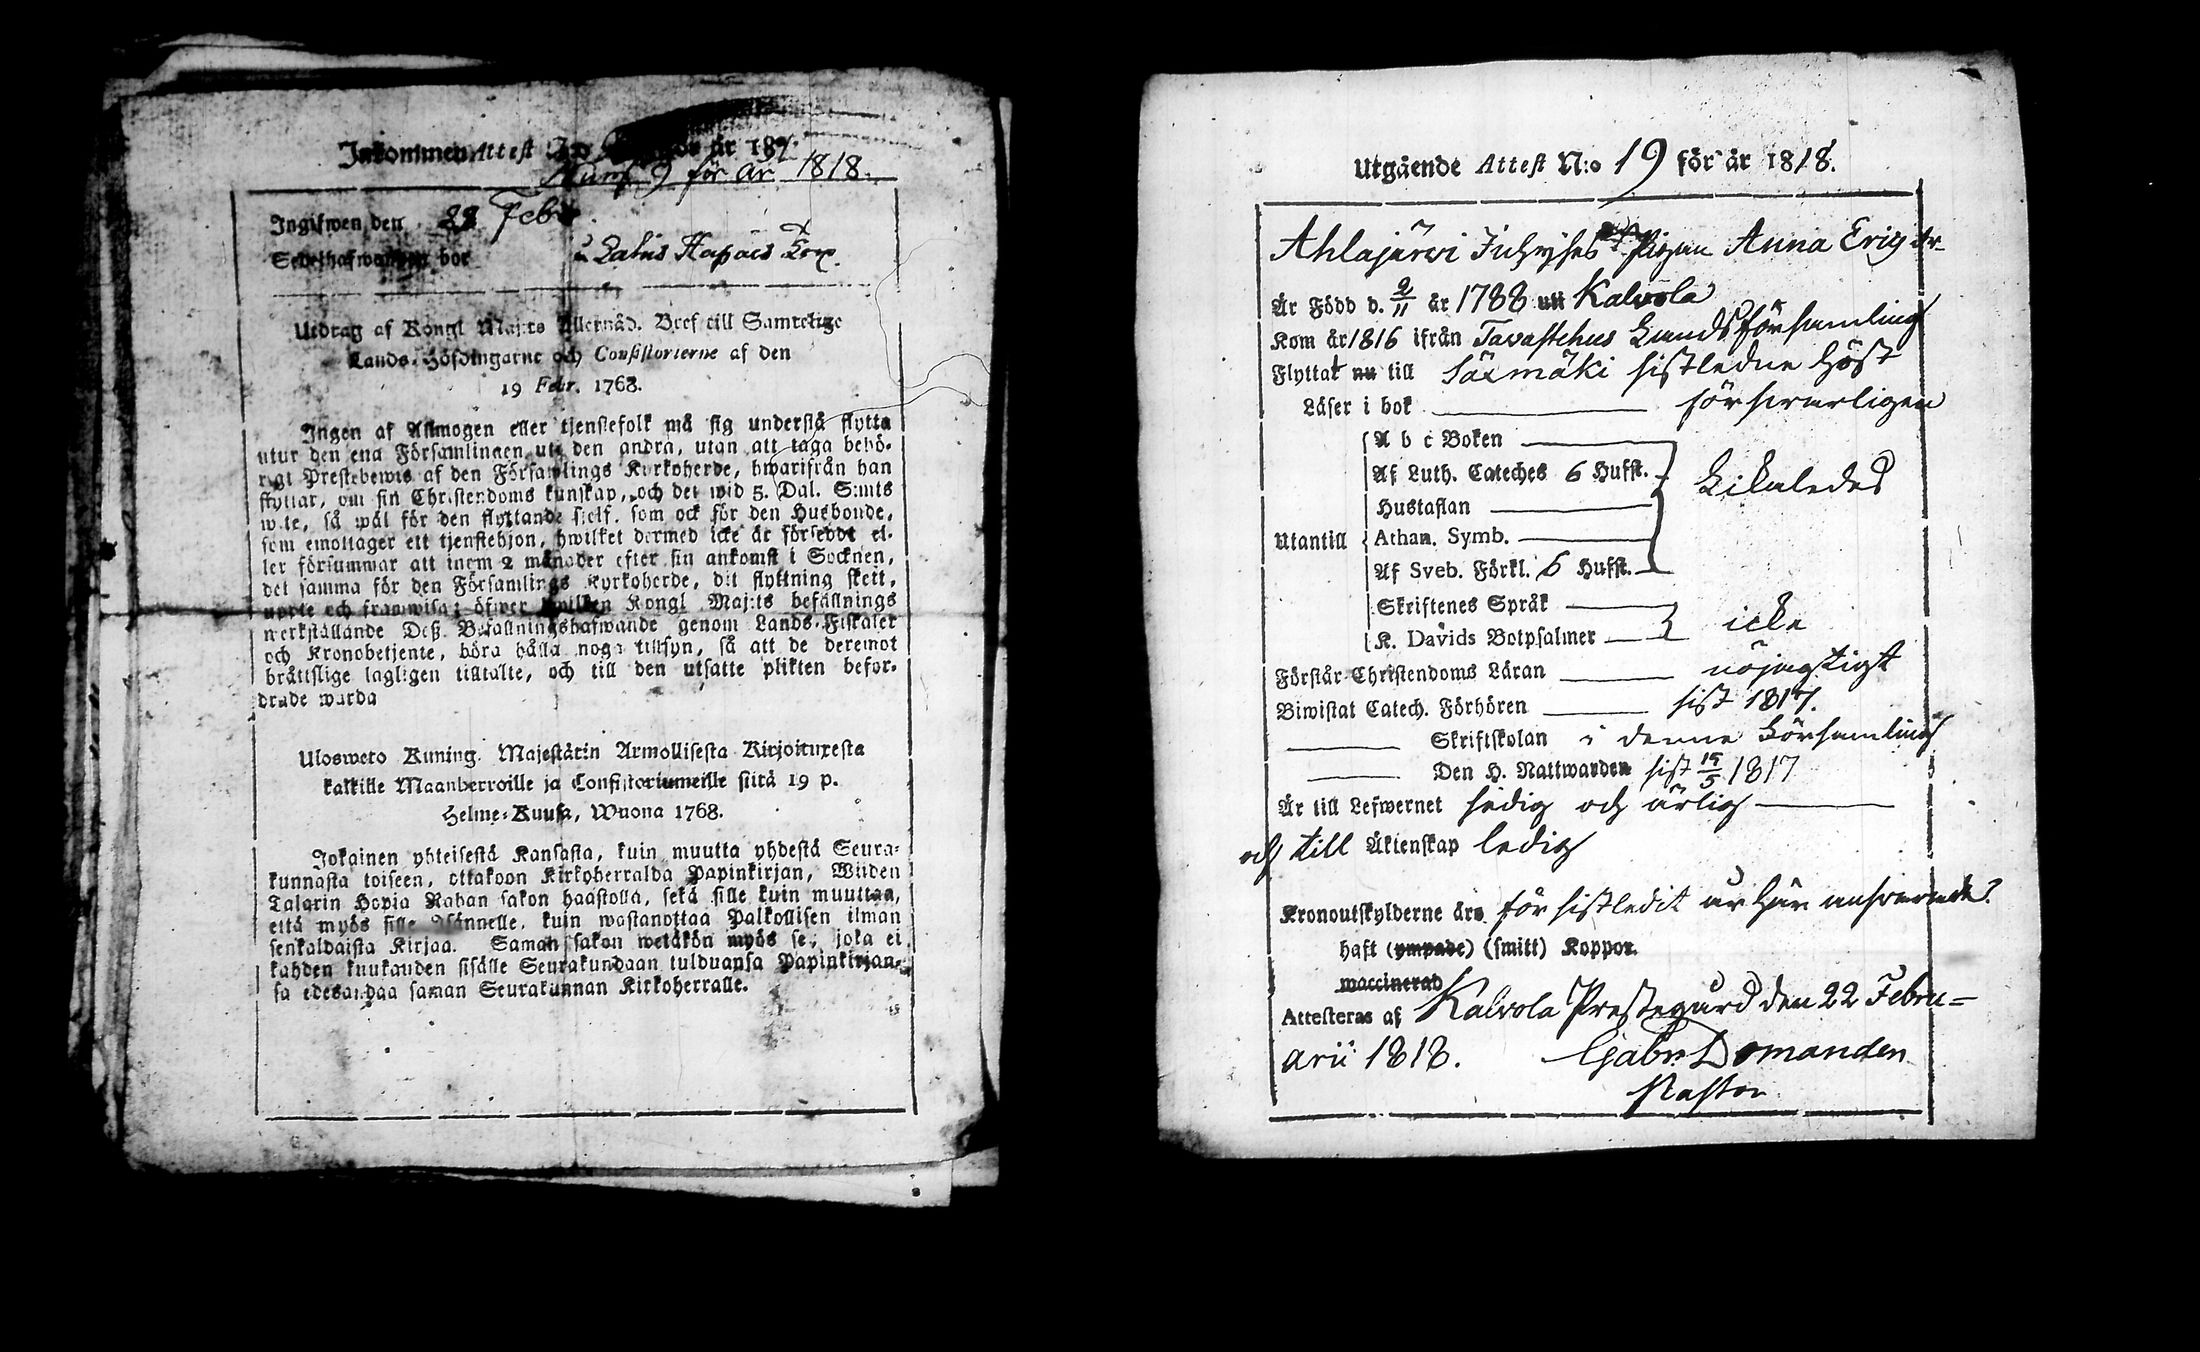 Inkommen Attest år 18
Num 9 för år 1818.
Ingifwen den 22 Febr
Sedelhafwaren bor
Utdrag af Kongl Maj:ts Allernåd. Bref till Samtelige
Lands-Höfdingarne och Consistorierne af den
19 Febr. 1768.
Ingen af Allmogen eller tjenstefolk må sig understå flytta
utur den ena Församlingen uti den andra, utan att taga behö-
rigt Prestebewis af den Församlings Kyrkoherde, hwarifrån han
flyttar, om sin Christendoms kunskap, och det wid 5. Dal. S:mts
wite, så wäl för den flyttande sielf, som ock för den Husbonde,
som emottager ett tjenstehjon, hwilket dermed icke är försedt el-
ler försummar att inom 2 månader efter sin ankomst i Socknen,
det samma för den Församlings Kyrkoherde, dit flyttning skett,
upptе och framwisa; öfwer hwilken Kongl Maj:ts befallnings
werkställande Deß Befallningshafwande genom Lands-Fiskaler
och Kronobetjente, böra hålla noga tillsyn, så att de deremot
bråttslige lagligen tilltalte, och till den utsatte plikten befor-
drade warda
Ulosweto Kuning. Majestätin Armollisesta Kirjoituxesta
kaikille Maanherroille ja Consistoriumeille siitä 19 p.
Helme-Kuusa, Wuona 1768.
Jokainen yhteisestä Kansasta, kuin muutta yhdestä Seura-
kunnasta toiseen, ottakoon Kirkoherralda Papinkirjan, Wiiden
Talarin Hopia Rahan sakon haastolla, sekä sille kuin muuttaa,
että myös sille Isännelle, kuin wastanottaa Palkollisen ilman
senkaldaista Kirjaa. Saman sakon wetäkön myös se, joka ei
kahden kuukauden sisälle Seurakundaan tulduansa Papinkirjan-
sa edesandaa saman Seurakunnan Kirkoherralle.
Utgående Attest N:o 19 för år 1818.
Ahlajärvi Pigan Anna Erigsdr
Är Född d. 2/11 år 1788 uti Kalvola
Kom år 1816 ifrån Tavastehus Landsförsamling
Flyttat nu till Säxmäki sistledne Höst
Läser i bok försvarligen
A b c Boken
Af Luth. Cateches 6 Hufst.
Hustaflan
Likaledes
Utantill Athan. Symb.
Af Sveb. Förkl. 6 Hufst.
Skriftenes Språk
K. Davids Botpsalmer icke
Förstår Christendoms Läran nöjagtigt
Biwistat Catech. Förhören sist 1817.
Skriftskolan i denne Församling
Den H. Nattwarden sist 15/5 1817
Är till Lefwernet sedig och ärlig
och till Äktenskap ledig
Kronoutskylderne äro för sistledit år här
haft (ympade) (smitt) Koppor.
waccinerad
Attesteras af Kalvola Prestegård den 22 Febru=
arii 1818. Gabr. Domanden
Pastor